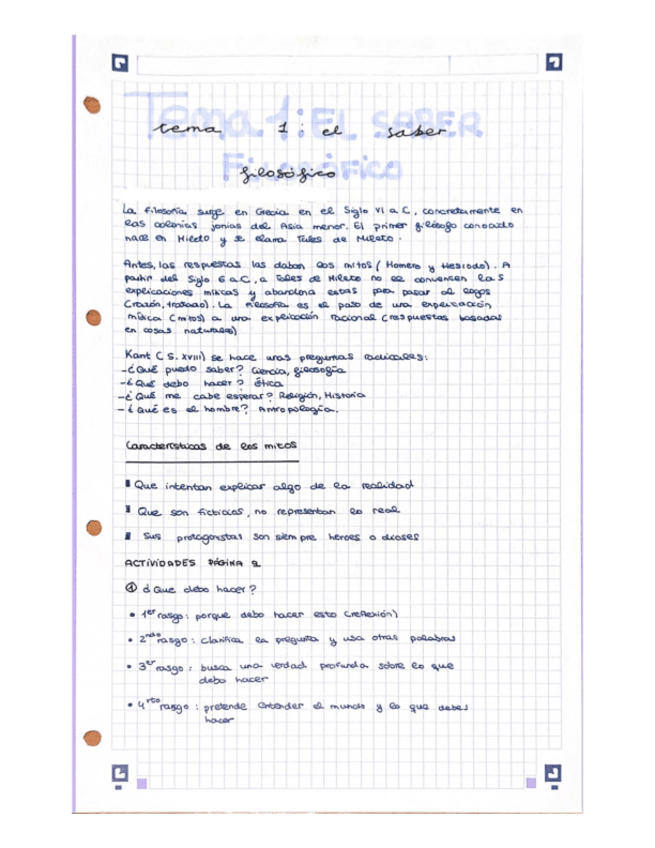 Tema 1: EL SABER
Filosófico
tema 1: el saber
filosófico
La filosofía surge en Grecia en el Siglo VI a.C, concretamente en
las colonias jonias del Asia menor. El primer filósofo conocido
nace en Mileto y se llama Tales de Mileto.
Antes, las respuestas las daban los mitos (Homero y Hesiodo). A
partir del Siglo 6 a.C, a Tales de Mileto no le convencen las
explicaciones míticas y abandona estas para pasar al logos
(razón, tratado). La filosofía es el paso de una explicación
mítica (mitos) a una explicación racional (respuestas basadas
en cosas naturales)
Kant (S. XVIII) se hace unas preguntas radicales:
-¿Qué puedo saber? Ciencia, filosofía
-¿Qué debo hacer? ética
-¿Qué me cabe esperar? Religión, Historia
-¿Qué es el hombre? Antropología.
Características de los mitos
Que intentan explicar algo de la realidad
Que son ficticios, no representan lo real
Sus protagonistas son siempre heroes o dioses
ACTIVIDADES PÁGINA 9
① ¿Que debo hacer?
• 1er rasgo: porque debo hacer esto (reflexión)
• 2ndo rasgo: clarifica la pregunta y usa otras palabras
• 3er rasgo: busca una verdad profunda sobre lo que
debo hacer
• 4rto rasgo: pretende entender el mundo y lo que debes
hacer